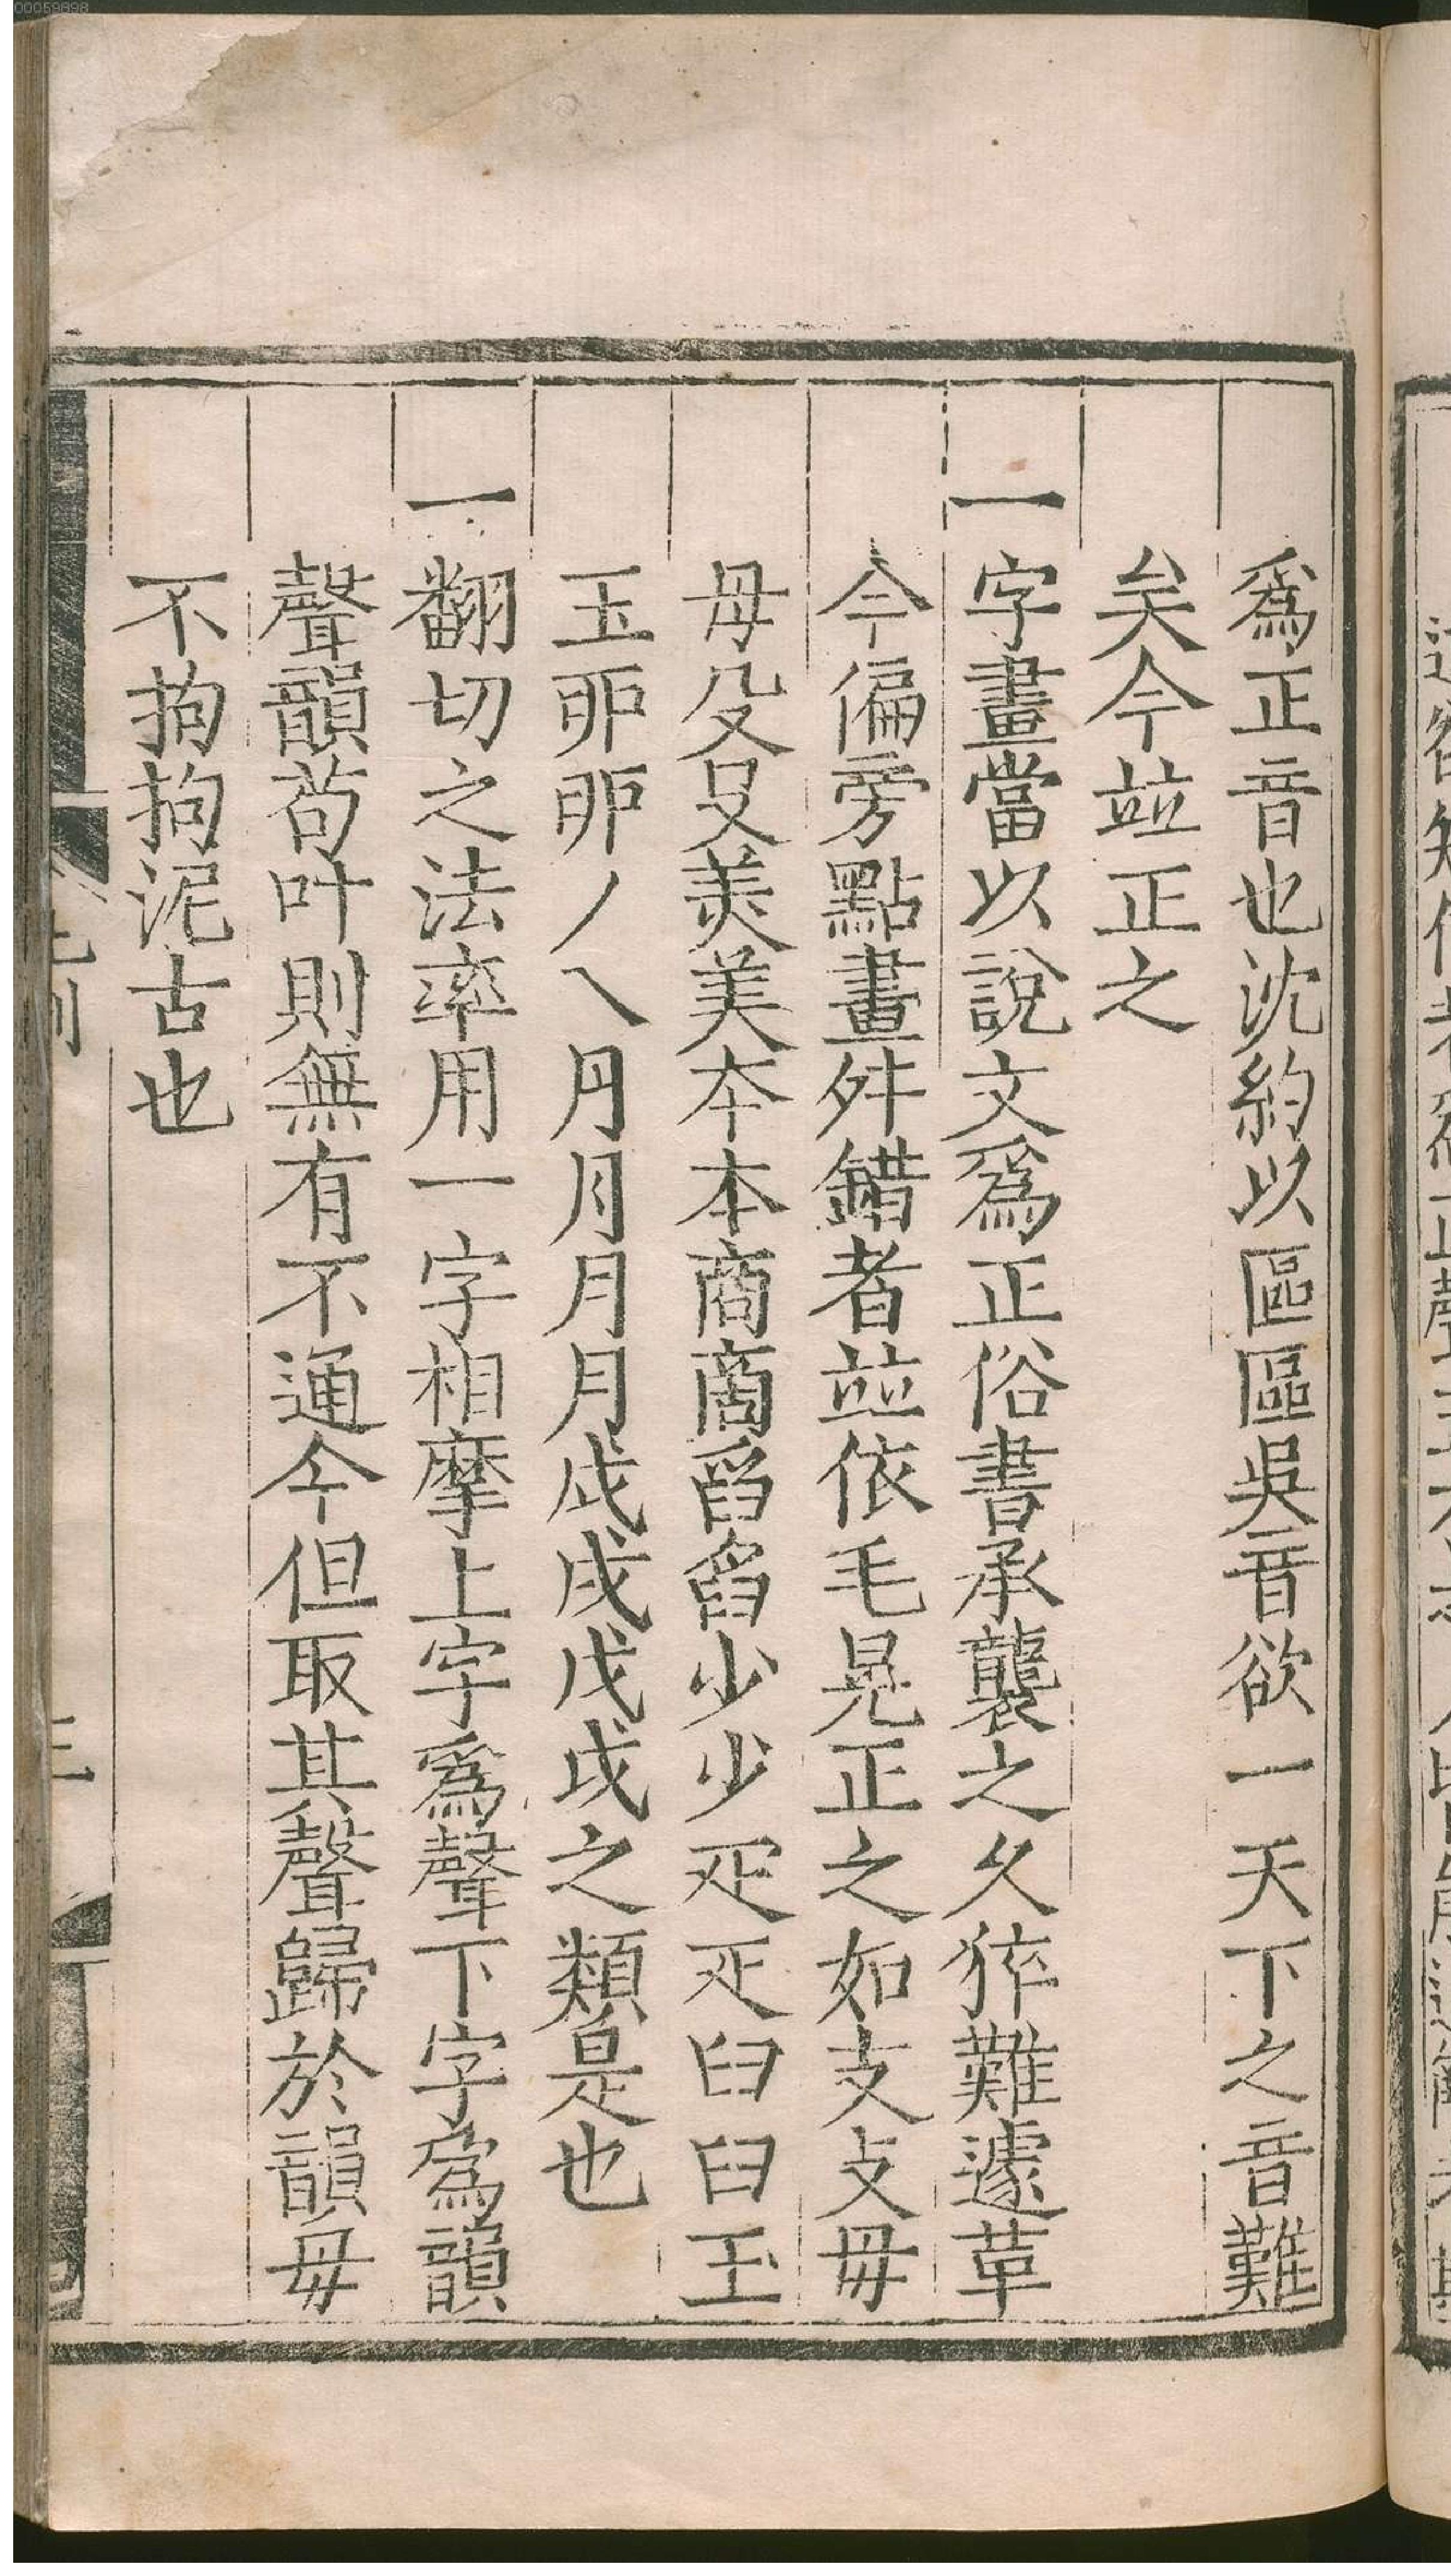 爲正音也沈約以區區吳音欲一天下之音難
矣今竝正之
一字畫當以說文爲正俗書承襲之久猝難遽革
今偏旁點畫舛錯者竝依毛晃正之如支攴毋
母殳㕛羙美夲本商啇舀臽少少疋疋臼𦥑玉
王戼卯丿乀丹月月月戍戌戊戉之類是也
一翻切之法率用一字相摩上字爲聲下字爲韻
聲韻苟叶則無有不通今但取其聲歸於韻毋
不拘拘泥古也
凡例
三
00059898